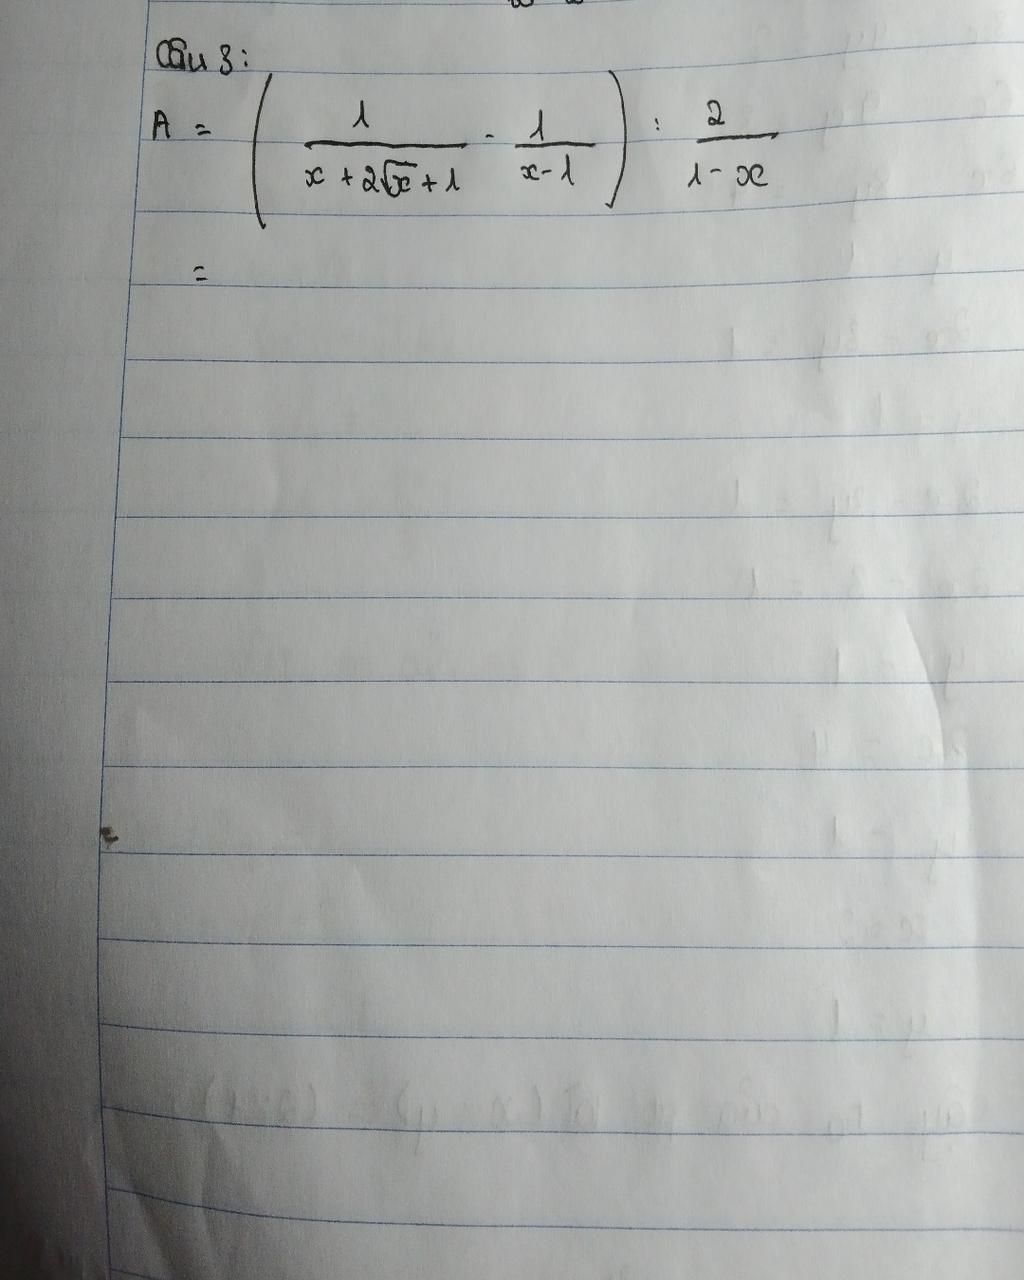 Câu 3:
A = ( 1 / (x + 2√x + 1) - 1 / (x - 1) ) : 2 / (1 - x)
=